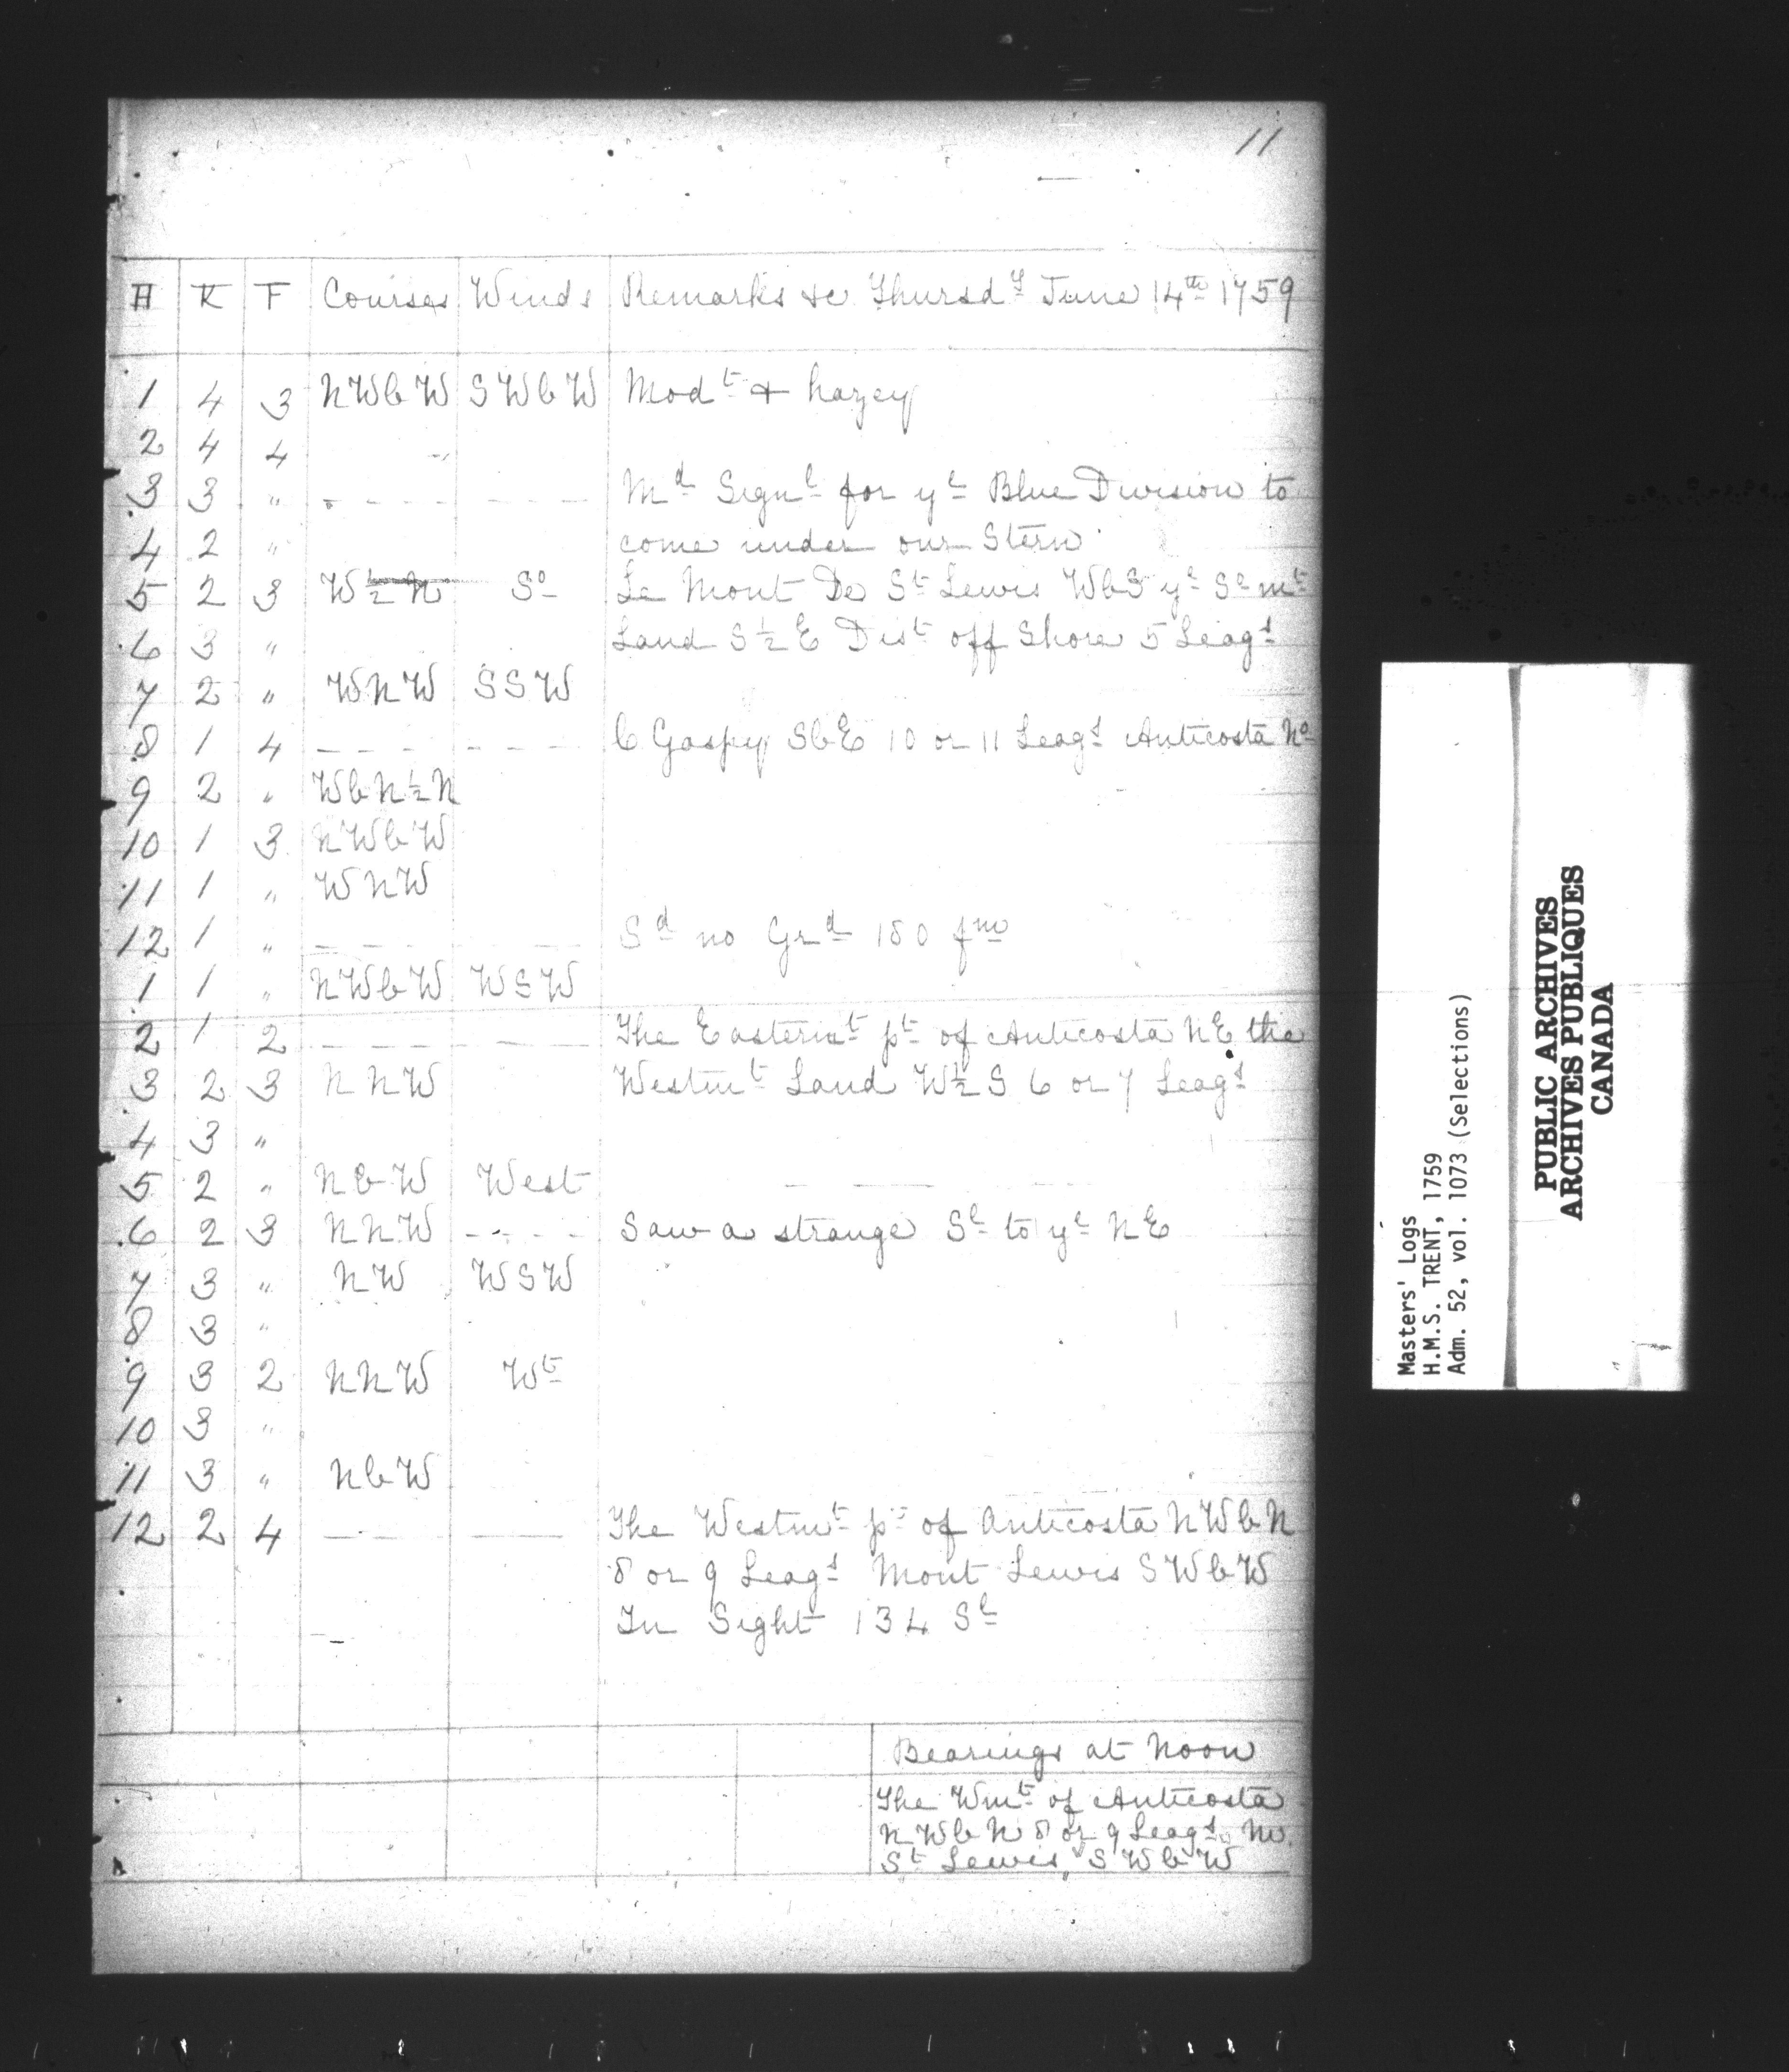 11
H K F Courses Winds Remarks &c Thursdy June 14th 1759
1 4 3 NWbW SWbW Modt & hazey
2 4 4 "
3 3 " - - - - - - - - Md Signl for ye Blue Division to
4 2 " come under our Stern
5 2 3 W½N So Le Mont De St Lewis WbS ye So mt
6 3 " Land S½E Dist off Shore 5 Leags
7 2 " WNW SSW
8 1 4 - - - - - - - - C Gaspy SbE 10 or 11 Leags Anticosta No
9 2 " WbN½N
10 1 3 NWbW
11 1 " WNW
12 1 " - - - - - - Sd no Grd 180 fm
1 1 " NWbW WSW
2 1 2 - - - - - - - The Easternt pt of Anticosta NE the
3 2 3 NNW Westmt Land W½S 6 or 7 Leags
4 3 "
5 2 " NbW West - - -
6 2 3 NNW - - - - Saw a strange Sl to ye NE
7 3 " NW WSW
8 3 "
9 3 2 NNW Wt
10 3 "
11 3 " NbW
12 2 4 - - - - The Westmt pt of Anticosta NWbN
8 or 9 Leags Mont Lewis SWbW
In Sight 134 Sl
Bearings at Noon
The Wmt of Anticosta
NWbN 8 or 9 Leags
St Lewis SWbW
Masters' Logs
H.M.S. TRENT, 1759
Adm. 52, vol. 1073 (Selections)
PUBLIC ARCHIVES
ARCHIVES PUBLIQUES
CANADA